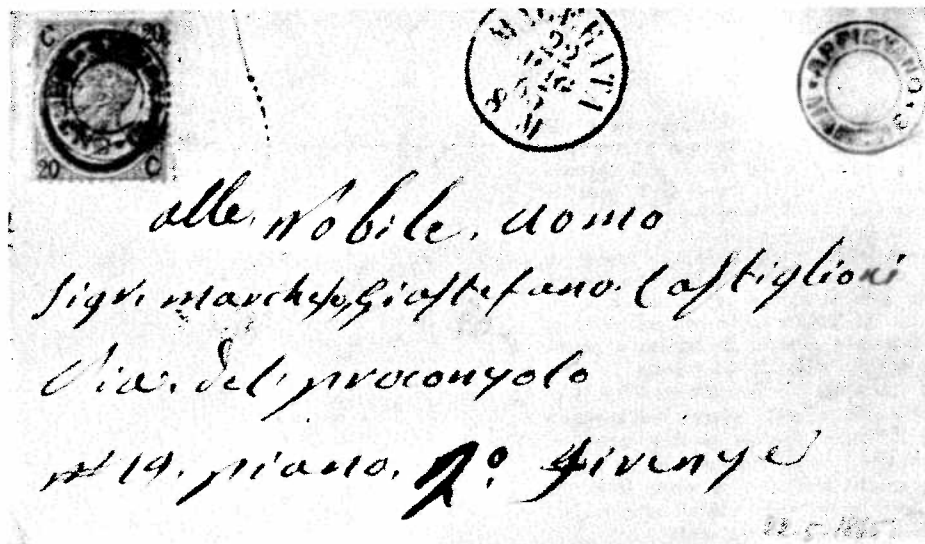 C 20
20 C
MACERATA
APPIGNANO
alle. Nobile. uomo
Sigr. marchese Giastefano. Castiglioni
Via. del. proconyolo
N 19. piano. 2º. Firenye
22-5-1865